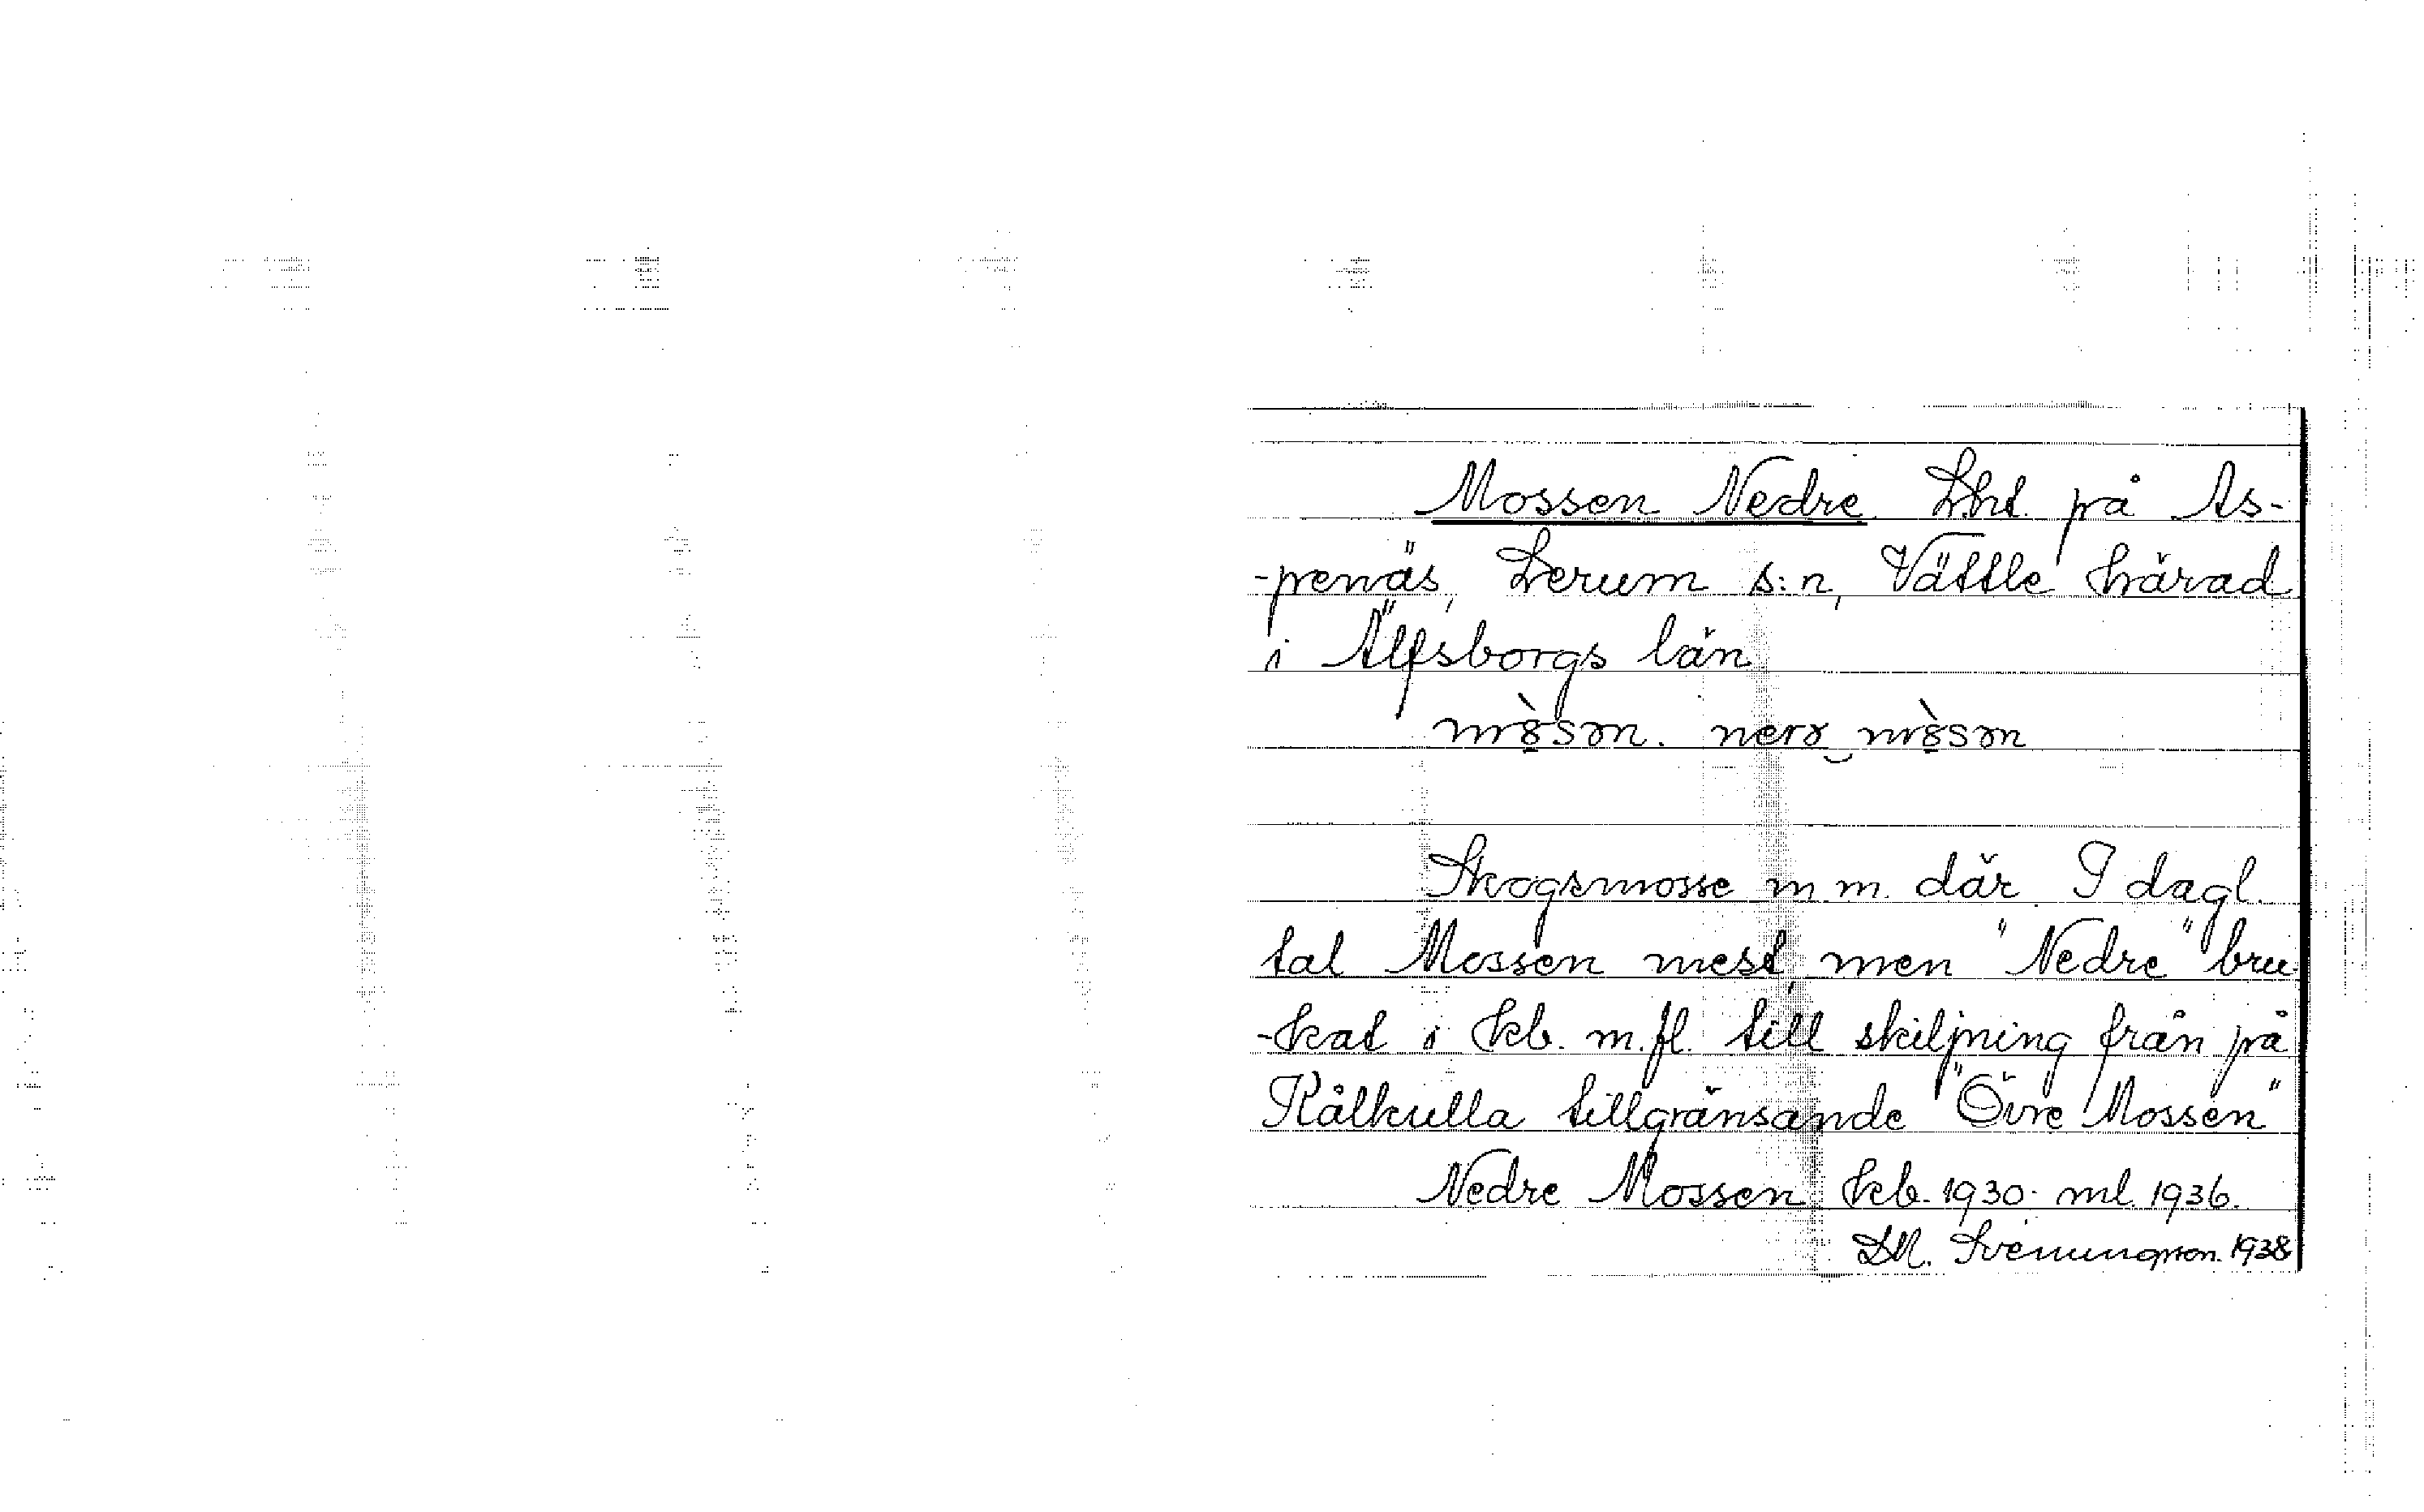 Mossen Nedre. Lht. på As-
-penäs, Lerum s:n, Vättle härad
i Älfsborgs län
Skogsmosse m m. där. I dagl.
tal Mossen mest, men "Nedre" bru
-kat i kb. m.fl. till skiljning från på
Kålkulla tillgränsande "Övre Mossen"
Nedre Mossen kb. 1930. ml. 1936.
LM. Svenungsson. 1938